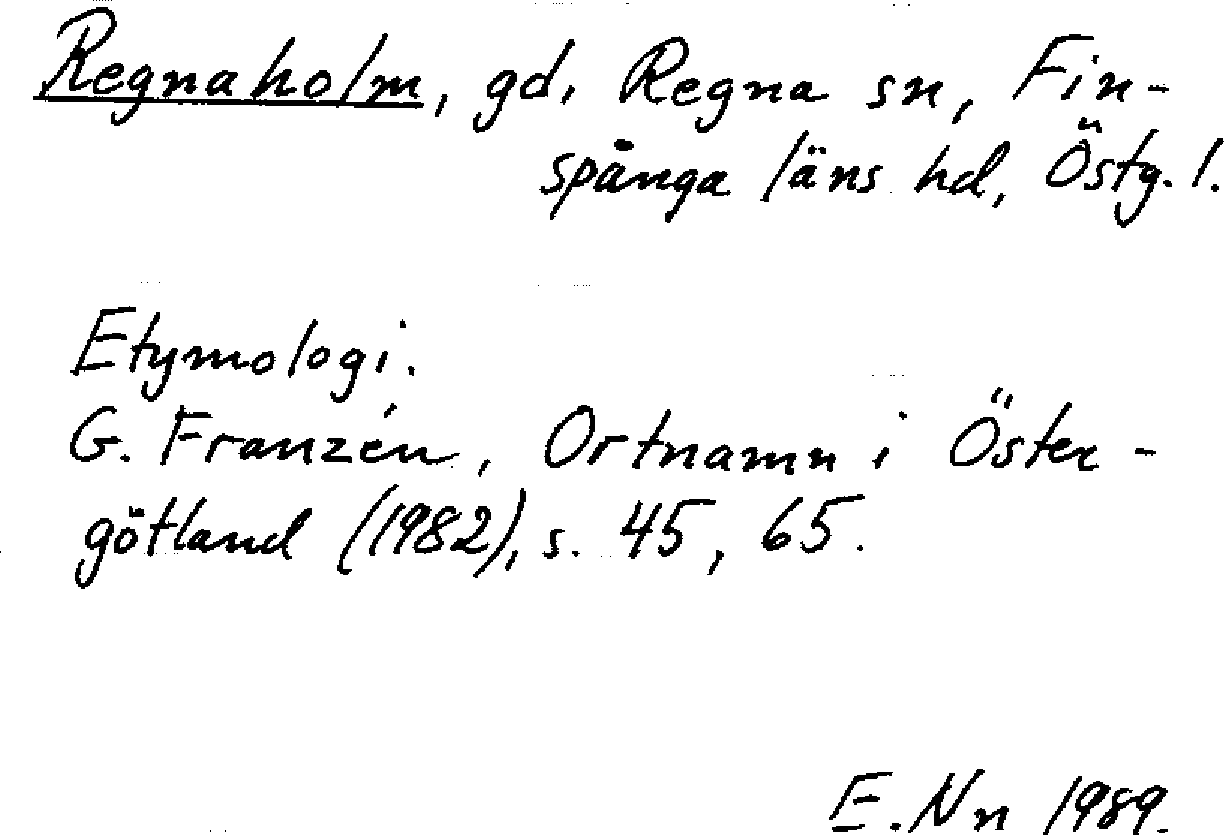 Regnaholm, gd, Regna sn, Fin-
spånga läns hd, Östg. l.
Etymologi.
G. Franzén, Ortnamn i Öster-
götland (1982), s. 45, 65.
E. Nn 1989.